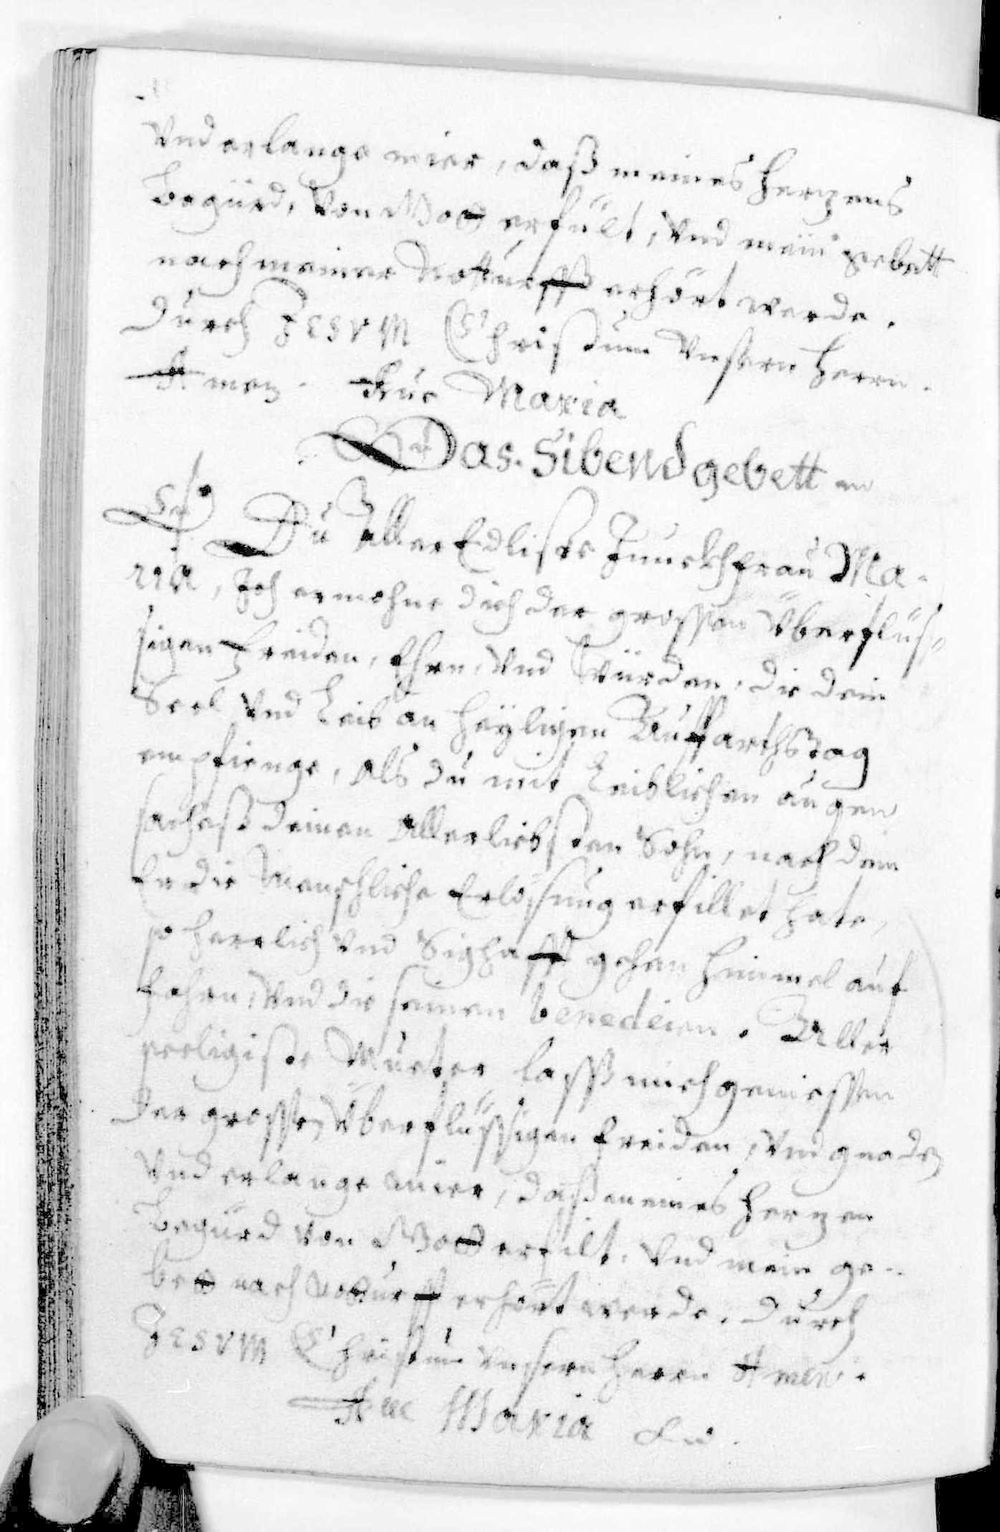 Vnd erlange mier, daß meines herzens
Begürd, Von Gott erfült, Vnd mein gebett
nach meiner Notturfft erhört werde.
Durch JESVM Christum Vnsern herrn.
Amen. Aue Maria
Das. Sibend gebett
O Du Aller Edliste Junckhfrau Ma-
ria, Ich ermohne dich der grossen Überflüs-
sigen Freiden, Ehrn, Vnd Würden, die dein
Seel Vnd Leib an heyligen Auffarthstag
empfienge, Als du mit Leiblichen augen
sachest deinen Allerliebsten Sohn, nach dem
Er die Menschliche Erlösung erfillet hate,
so herrlich Vnd Sighafft gehen himmel auf
fahrn, Vnd die seinen benedeien. Aller
seeligiste Mueter lasß mich geniessen
der grossen Überflüssigen freiden, Vnd gnaden
Vnd erlange mier, daß meines herzen
Begürd Von Gott erfilt, Vnd mein ge-
bett nach notturfft erhört werde, Durch
JESVM Christum Vnsern herrn Amen.
Aue Maria